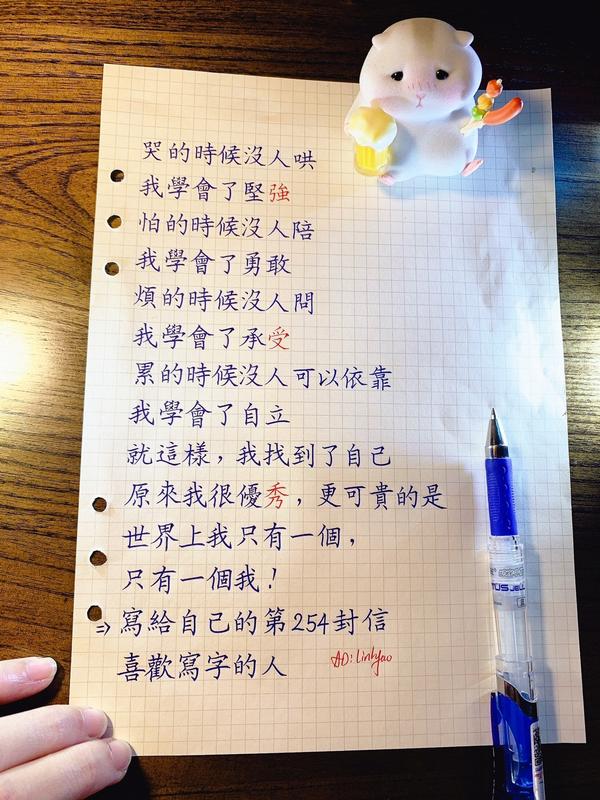 哭的時候沒人哄
我學會了堅強
怕的時候沒人陪
我學會了勇敢
煩的時候沒人問
我學會了承受
累的時候沒人可以依靠
我學會了自立
就這樣，我找到了自己
原來我很優秀，更可貴的是
世界上我只有一個，
只有一個我！
⇒寫給自己的第254封信
喜歡寫字的人